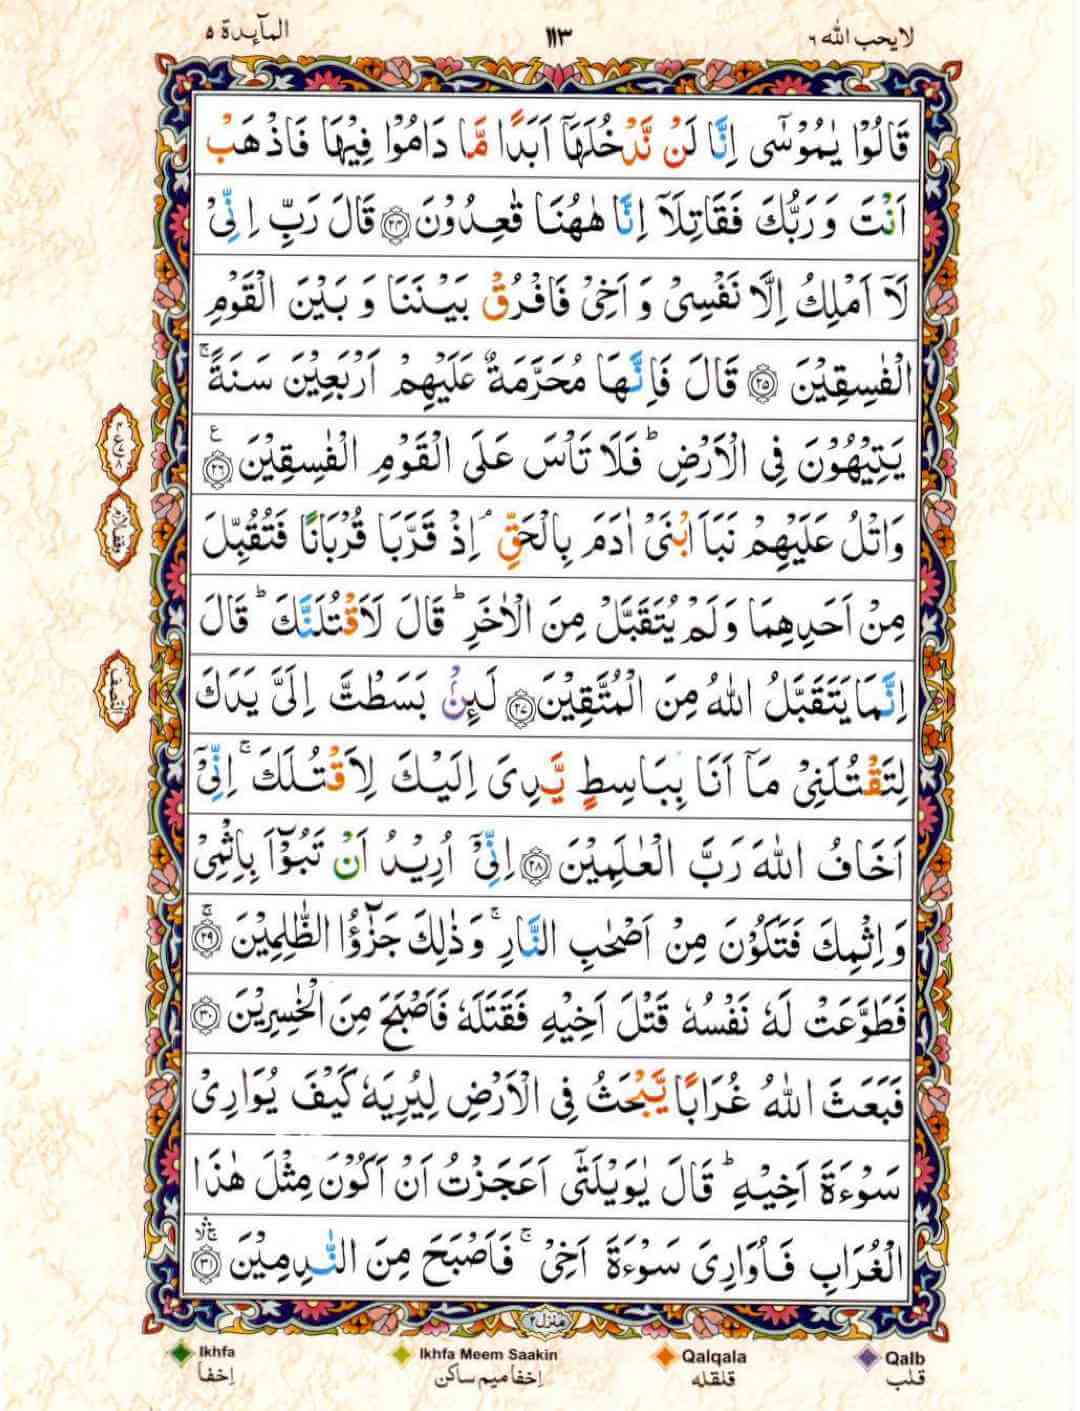 لا يحب الله ٦ ١١٣ المآىِٕدة ٥
قَالُوْا يٰمُوْسٰۤى اِنَّا لَنْ نَّدْخُلَهَاۤ اَبَدًا مَّا دَامُوْا فِيْهَا فَاذْهَبْ
اَنْتَ وَ رَبُّكَ فَقَاتِلَاۤ اِنَّا هٰهُنَا قٰعِدُوْنَ ﴿۲۴﴾ قَالَ رَبِّ اِنِّيْ
لَاۤ اَمْلِكُ اِلَّا نَفْسِيْ وَ اَخِيْ فَافْرُقْ بَيْنَنَا وَ بَيْنَ الْقَوْمِ
الْفٰسِقِيْنَ ﴿۲۵﴾ قَالَ فَاِنَّهَا مُحَرَّمَةٌ عَلَيْهِمْ اَرْبَعِيْنَ سَنَةً ۚ
يَتِيْهُوْنَ فِي الْاَرْضِ ؕ فَلَا تَاْسَ عَلَى الْقَوْمِ الْفٰسِقِيْنَ ﴿۲۶﴾ ع
وَاتْلُ عَلَيْهِمْ نَبَاَ ابْنَيْ اٰدَمَ بِالْحَقِّ ۘ اِذْ قَرَّبَا قُرْبَانًا فَتُقُبِّلَ
مِنْ اَحَدِهِمَا وَ لَمْ يُتَقَبَّلْ مِنَ الْاٰخَرِ ؕ قَالَ لَاَقْتُلَنَّكَ ؕ قَالَ
اِنَّمَا يَتَقَبَّلُ اللّٰهُ مِنَ الْمُتَّقِيْنَ ﴿۲۷﴾ لَىِٕنْۢ بَسَطْتَّ اِلَيَّ يَدَكَ
لِتَقْتُلَنِيْ مَاۤ اَنَا بِبَاسِطٍ يَّدِيَ اِلَيْكَ لِاَقْتُلَكَ ۚ اِنِّيْۤ
اَخَافُ اللّٰهَ رَبَّ الْعٰلَمِيْنَ ﴿۲۸﴾ اِنِّيْۤ اُرِيْدُ اَنْ تَبُوْٓاَ بِاِثْمِيْ
وَ اِثْمِكَ فَتَكُوْنَ مِنْ اَصْحٰبِ النَّارِ ۚ وَ ذٰلِكَ جَزٰٓؤُا الظّٰلِمِيْنَ ﴿۲۹﴾ ۚ
فَطَوَّعَتْ لَهٗ نَفْسُهٗ قَتْلَ اَخِيْهِ فَقَتَلَهٗ فَاَصْبَحَ مِنَ الْخٰسِرِيْنَ ﴿۳۰﴾
فَبَعَثَ اللّٰهُ غُرَابًا يَّبْحَثُ فِي الْاَرْضِ لِيُرِيَهٗ كَيْفَ يُوَارِيْ
سَوْءَةَ اَخِيْهِ ؕ قَالَ يٰوَيْلَتٰۤى اَعَجَزْتُ اَنْ اَكُوْنَ مِثْلَ هٰذَا
الْغُرَابِ فَاُوَارِيَ سَوْءَةَ اَخِيْ ۚ فَاَصْبَحَ مِنَ النّٰدِمِيْنَ ﴿۳۱﴾ ۚۛۙ
النصف
منزل ٢
Ikhfa Ikhfa Meem Saakin Qalqala Qalb
اِخفا اِخفا میم ساکن قلقله قلب